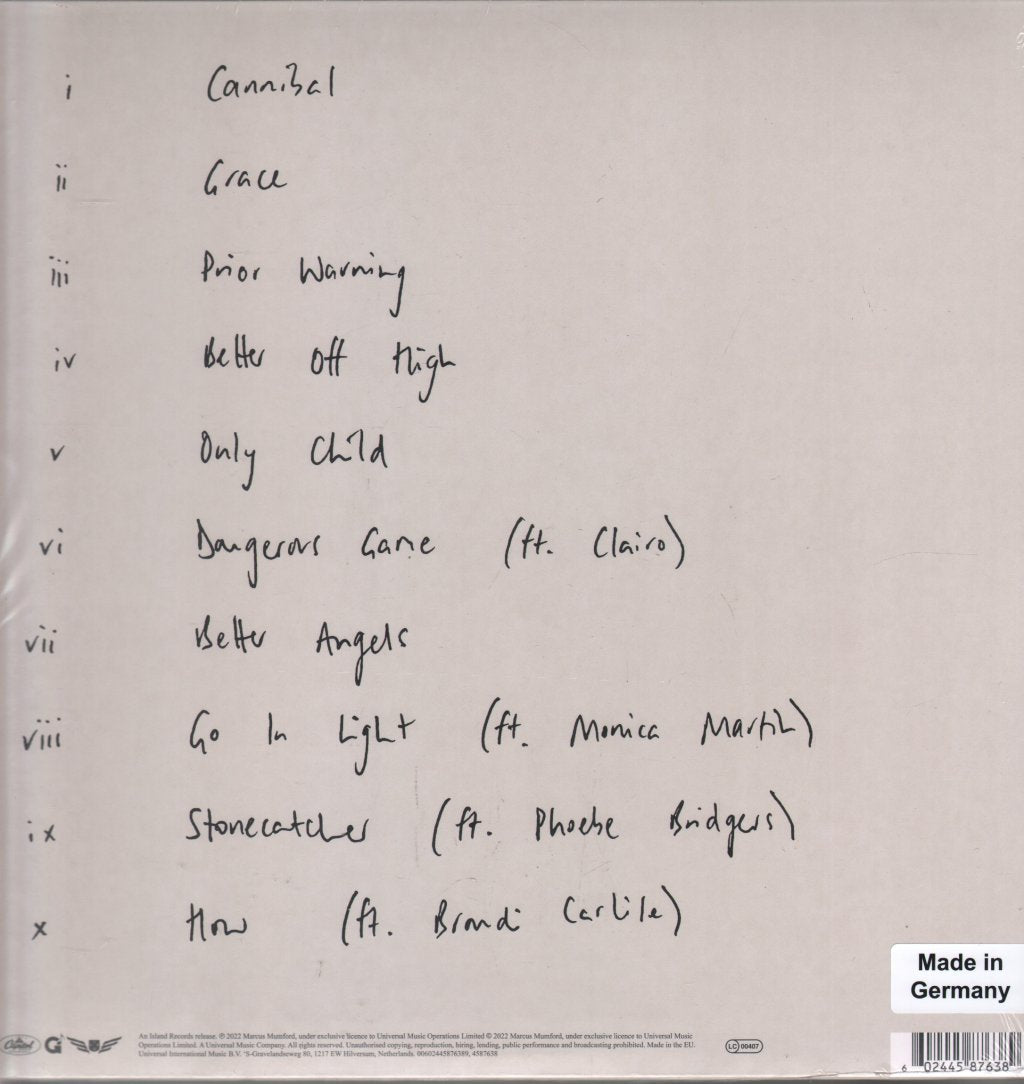 i Cannibal
ii Grace
iii Prior Warning
iv Better Off High
v Only Child
vi Dangerous Game (ft. Clairo)
vii Better Angels
viii Go In Light (ft. Monica Martin)
ix Stonecatcher (ft. Phoebe Bridgers)
x How (ft. Brandi Carlile)
Made in
Germany
Capitol G
An Island Records release. ℗ 2022 Marcus Mumford, under exclusive licence to Universal Music Operations Limited © 2022 Marcus Mumford, under exclusive licence to Universal Music
Operations Limited. A Universal Music Company. All rights reserved. Unauthorised copying, reproduction, hiring, lending, public performance and broadcasting prohibited. Made in the EU.
Universal International Music B.V. 'S-Gravelandseweg 80, 1217 EW Hilversum, Netherlands. 00602445876389, 4587638
LC 00407
6 02445 87638